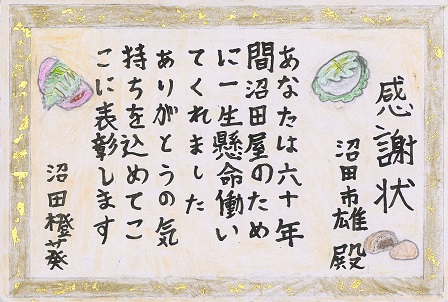 感謝状
沼田市雄 殿
あなたは六十年
間沼田屋のため
に一生懸命働い
てくれました
ありがとうの気
持ちを込めてこ
こに表彰します
沼田橙葵